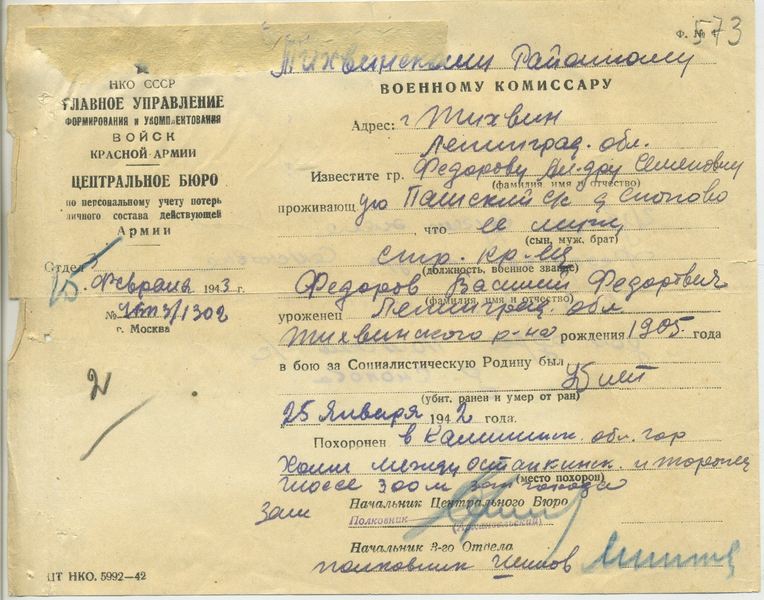 Ф. № 4
573
Тихвинскому Районному
ВОЕННОМУ КОМИССАРУ
НКО СССР
ГЛАВНОЕ УПРАВЛЕНИЕ
ФОРМИРОВАНИЯ и УКОМПЛЕКТОВАНИЯ
ВОЙСК
КРАСНОЙ АРМИИ
ЦЕНТРАЛЬНОЕ БЮРО
по персональному учету потерь
личного состава действующей
Армии
Отдел 3
15. февраля 1943 г.
/1302
г. Москва
2
Адрес: г Тихвин
Ленинград. обл.
Известите гр. Федорову Семеновну
(фамилия, имя и отчество)
проживающ ую Пашский
что ее муж
(сын, муж, брат)
стр. кр-ец
(должность, военное звание)
Федоров Василий Федорович
(фамилия, имя и отчество)
уроженец Ленинград. обл.
Тихвинского р-на рождения 1905 года
в бою за Социалистическую Родину был убит
(убит. ранен и умер от ран)
25 Января 1942 года.
Похоронен в Калининск. обл. гор
Холм между и
(место похорон)
шоссе 300 м зап. города
Зам Начальник Центрального Бюро
Полковник
Начальник 3-го Отдела
полковник
ЦТ НКО. 5992—42